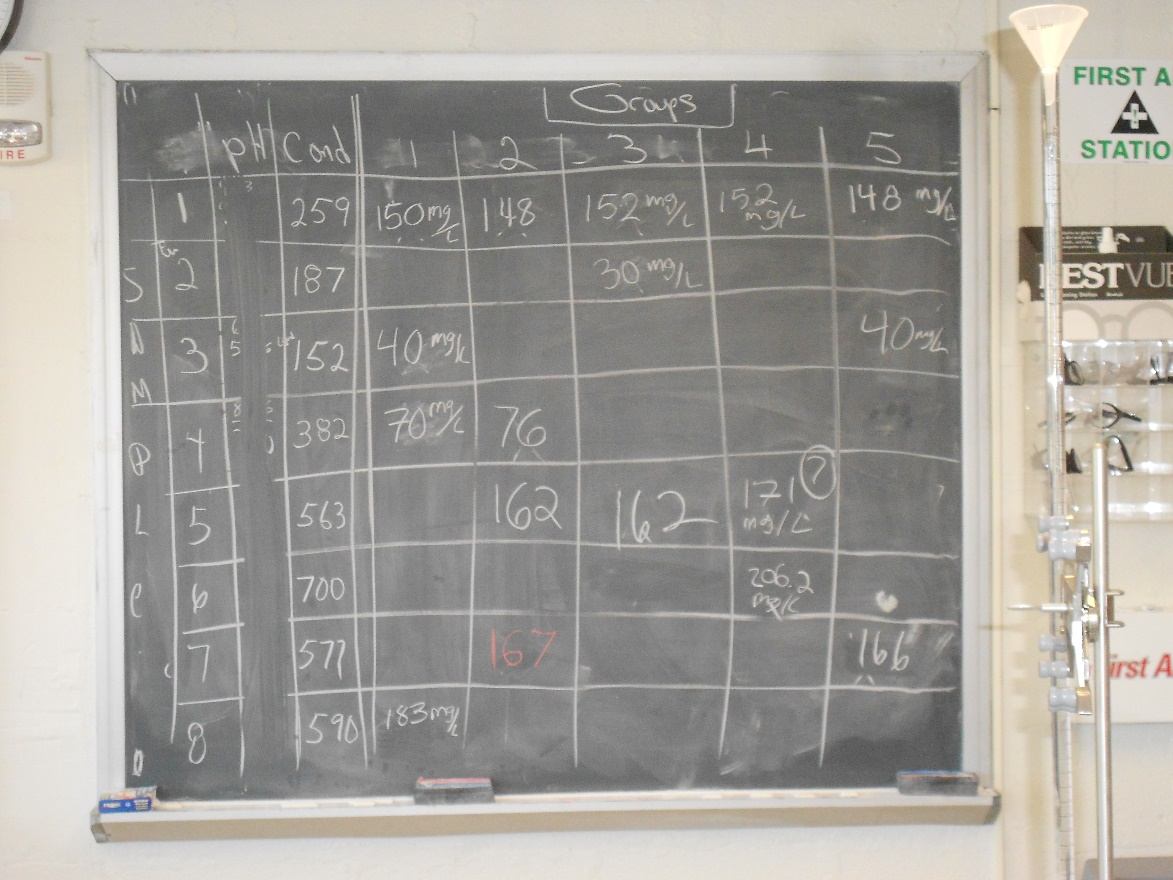 Groups
pH Cond 1 2 3 4 5
1 259 150 mg/L 148 152 mg/L 152 mg/L 148 mg/L
2 187 30 mg/L
3 152 40 mg/L 40 mg/L
4 382 70 mg/L 76
5 563 162 162 171 ? mg/L
6 700 206.2 mg/L
7 577 167 166
8 590 183 mg/L
S
A
M
P
L
e
FIRST A
STATIO
BESTVUE
irst A
FIRE